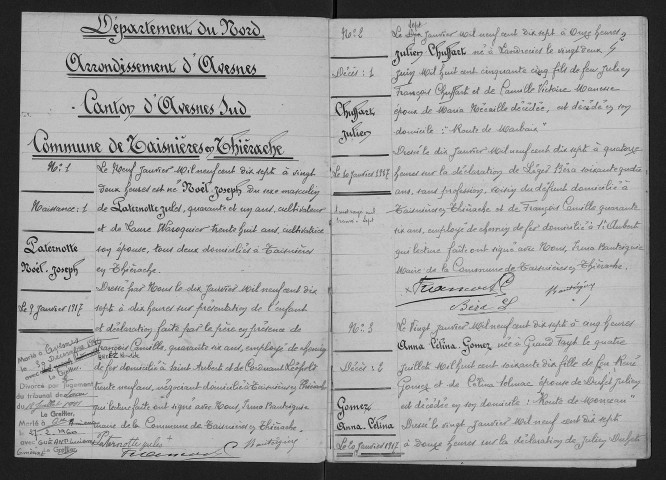 Département du Nord
Arrondissement d'Avesnes
Canton d'Avesnes Sud
Commune de Taisnières en Thiérache
No: 1
Naissance: 1
Paternotte
Noël, Joseph
Le 9 Janvier 1917
Marié à
le 30 Décembre
Divorcé par Jugement
du tribunal de
Le Greffier,
Marié à
le 27.2.1960
avec
Le Greffier
Le Neuf Janvier Mil neuf cent dix sept à vingt
deux heures est né Noël, Joseph du sexe masculin
de Paternotte Jules, quarante et un ans, cultivateur
et de Laure Waroquier trente huit ans, cultivatrice
son épouse, tous deux domiciliés à Taisnières
en Thiérache.
Dressé par Nous le dix Janvier Mil neuf cent dix
sept à dix heures sur présentation de l'enfant
et déclaration faite par le père en présence de
François Camille, quarante six ans, employé de chemin
de fer domicilié à Saint Aubert et de Léopold
trente neuf ans, négociant domicilié à Taisnières en Thiérache
qui lecture faite ont signé avec Nous,
Maire de la Commune de Taisnières en Thiérache.
Paternotte Jules
No: 2
Décès: 1
Chuffart
Julien
Le 10 Janvier 1917
Le sept Janvier Mil neuf cent dix sept à Onze heures
Julien Chuffart né à Landrecies le vingt deux
Juin Mil huit cent cinquante cinq fils de feu Julien
François Chuffart et de Camille Victoire
époux de Maria décédée, est décédé en son
domicile "Route de Marbaix"
Dressé le dix Janvier Mil neuf cent dix sept à quatorze
heures sur la déclaration de Léger Béra soixante quatre
ans, sans profession, voisin du défunt domicilié à
Taisnières en Thiérache et de François Camille quarante
six ans, employé de chemin de fer domicilié à St Aubert
qui lecture faite ont signé avec Nous,
Maire de la Commune de Taisnières en Thiérache.
Béra L
No: 3
Décès: 2
Gomez
Anna, Célina
Le 20 Janvier 1917
Le Vingt Janvier Mil neuf cent dix sept à cinq heures
Anna, Célina, Gomez née à Grand Fayt le quatre
Juillet Mil huit cent soixante dix fille de feu René
Gomez et de Célina épouse de
est décédée en son domicile: "Route de
Dressé le vingt Janvier Mil neuf cent dix sept
à Douze heures sur la déclaration de Julien